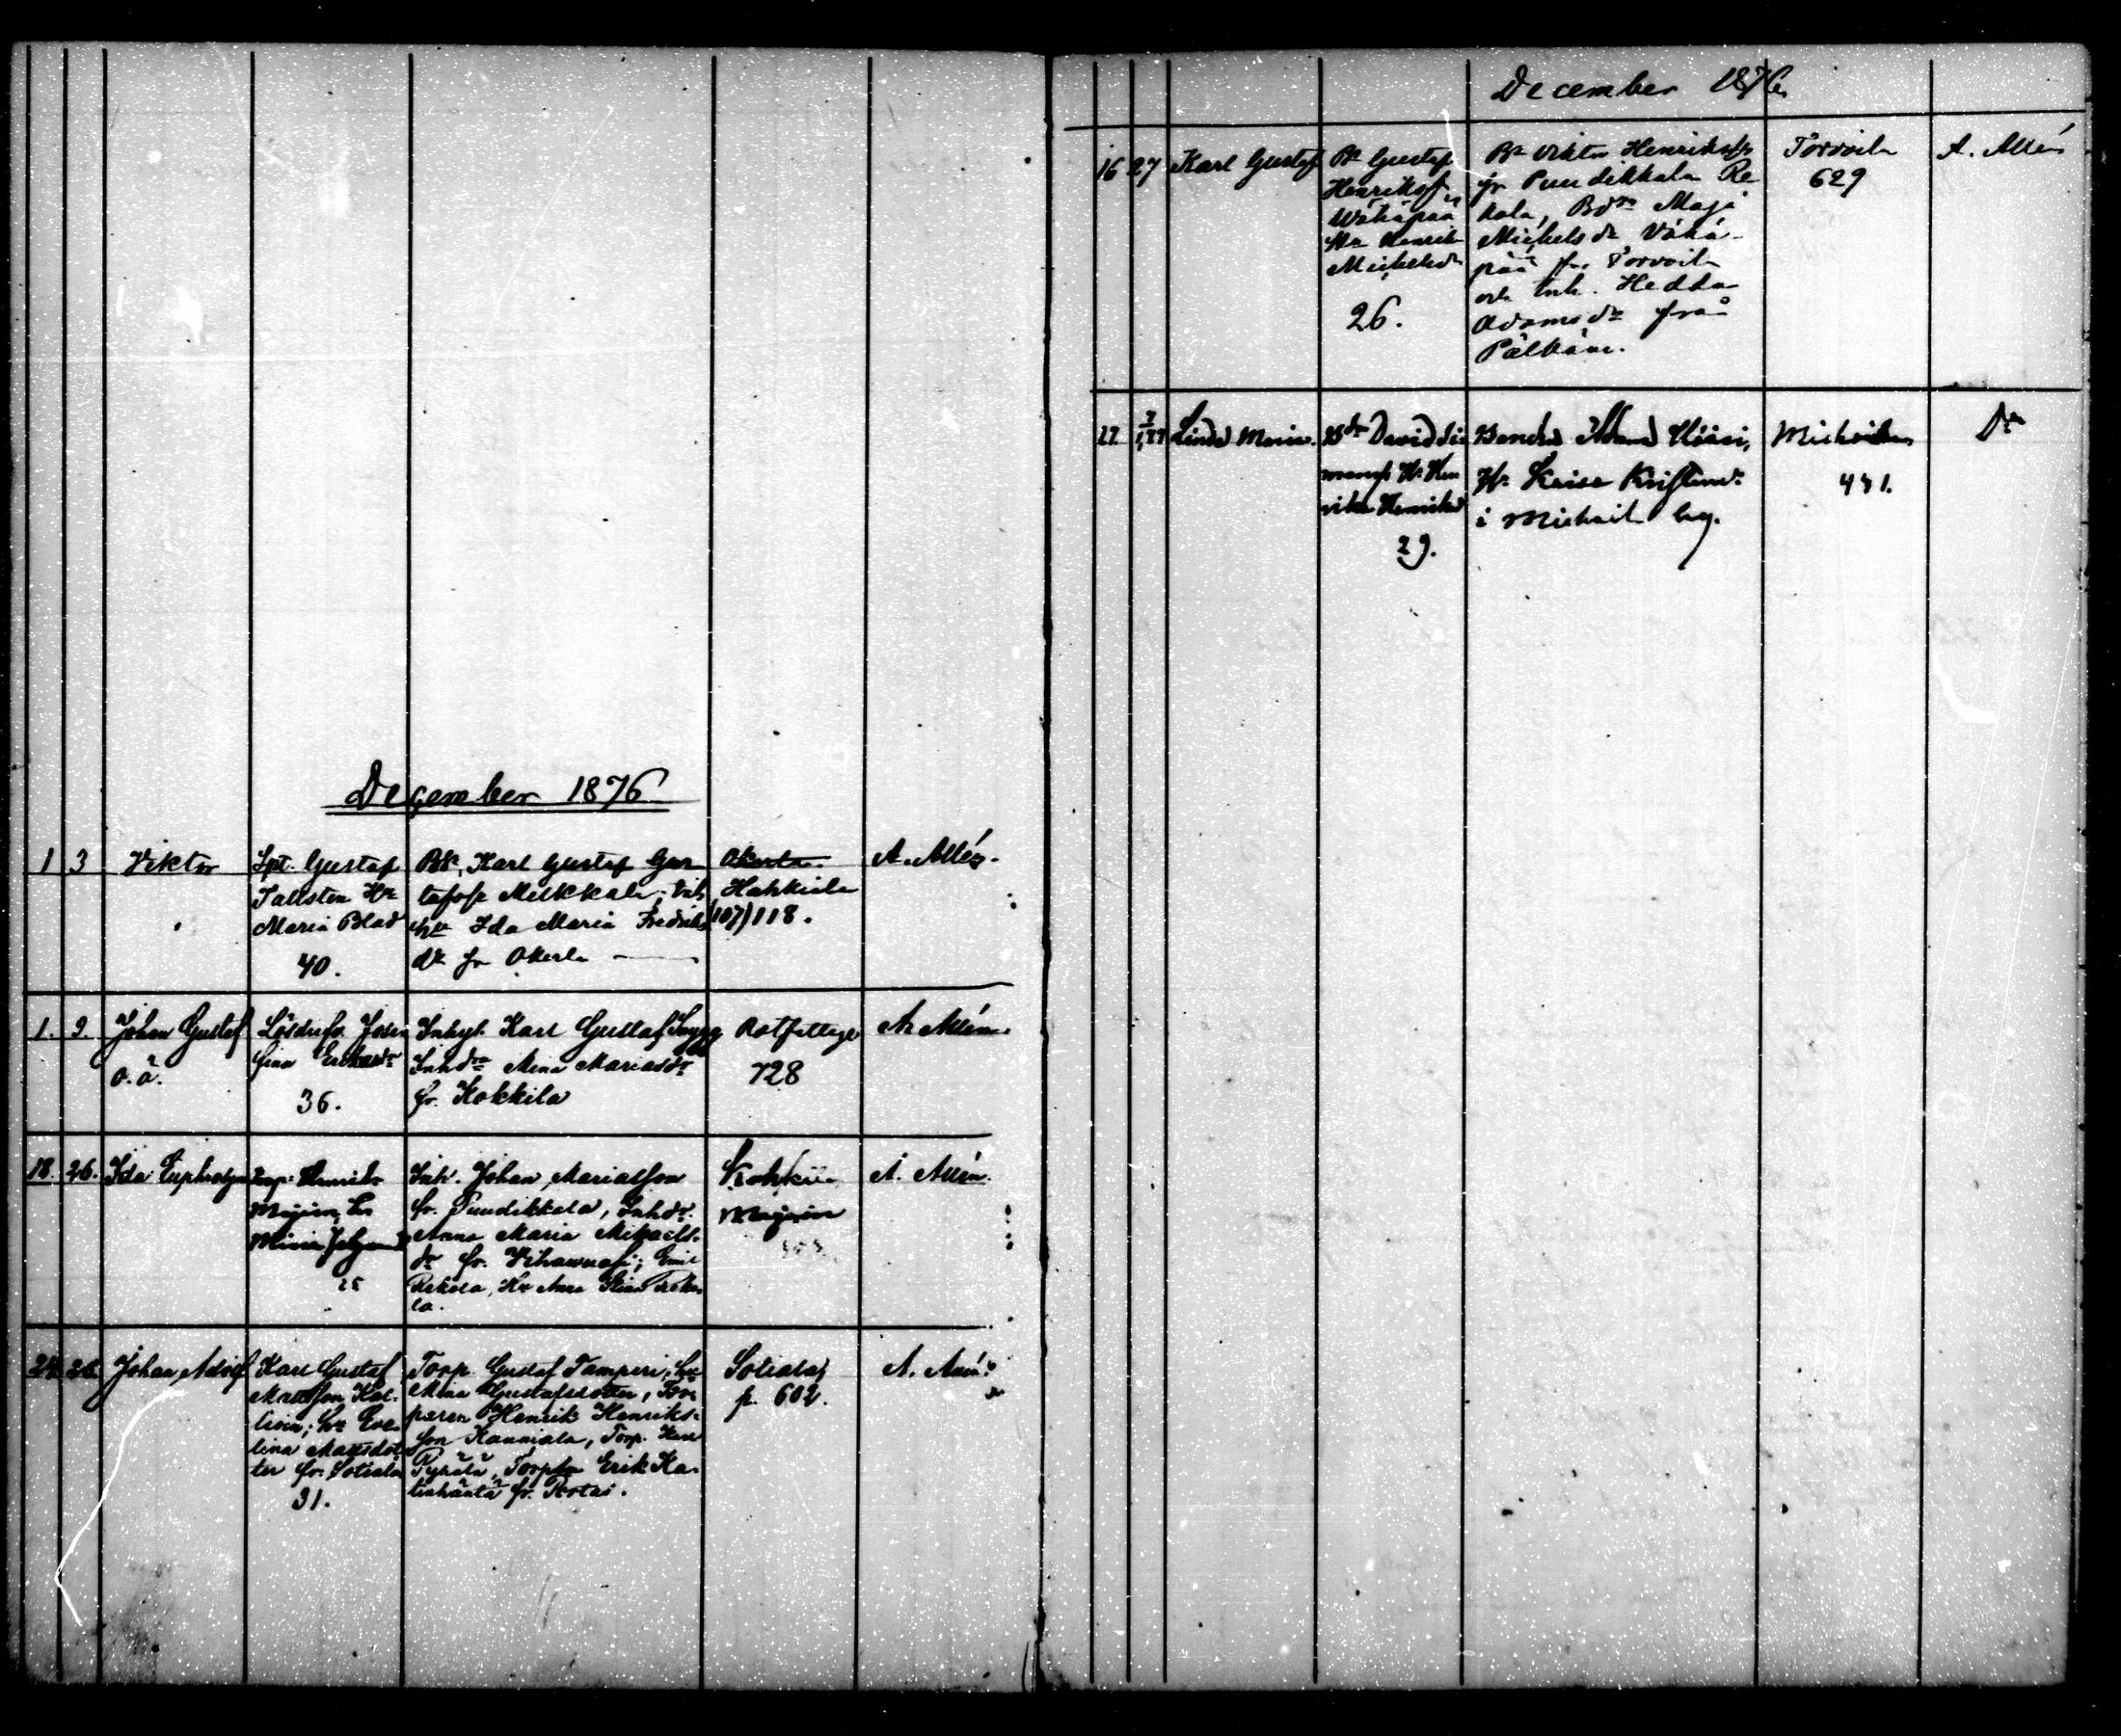 December 1876
1 3 Viktor
Spt. Gustaf
Tallsten Hu
Maria Blad
40.
Bk. Karl Gustaf Gus
tafsn Mellkkala;
hu Ida Maria Fredriks
dr fr Okerla
Okerla
Hahkiala
(107) 118.
A. Allén.
1. 9. Johan Gustaf
o. ä.
Lösdrifv. Jose
fina
36.
Inhys. Karl Gustaf Snygg
Inhdr Mina Mariasdr
fr. Kokkila
Rotfattige
728
A. Allén.
18. 26. Ida
Torp. Henrik
25
Inh. Johan Mariasson
fr. Puudikkala, Inhdr
Anna Maria Mikaels-
dr fr. Vihavuosi; Emil
Rekola, Hu Anna Stina Reko
la.
A. Allén.
26 Johan Adolf
Karl Gustaf
Mattsson Kat-
lina; hu Eve-
lina Mattsdot
ter fr. Sotiala
31.
Torp. Gustaf Tamperi, hu
Mina Gustafsdotter, Tor-
paren Henrik Henriks-
son Kanniala, Torp. Karl
Pyhälä, Torp. Erik Ka-
fr. Rotai.
Sotiala
p. 602.
A. Allén
December 1876
16 27 Karl Gustaf
Bk Gustaf
Henriksf.
Wähäpää
Hu Henrik
Michelsdr
26.
Bk Viktor Henriksfs
fr Puudikkala Re
kola, Bdr Maja
Michelsdr Vähä-
pää fr. Torvoila
och Inh. Hedda
Adamsdr från
Pälkäne.
Torvoila
629
A. Allén
Linda Maria.
Bdr David Si
Hu Hen
rika Henriksd
29.
Bonden
Hu Kaisa Kristiansdr
i Michoila by.
Michoila
Do